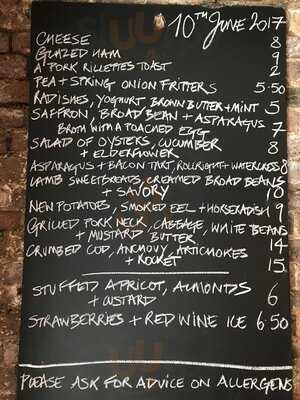 10TH JUNE 2017
CHEESE 8
GLAZED HAM 9
A' PORK RILLETTES TOAST 2
PEA + SPRING ONION FRITTERS 5.50
RADISHES, YOGHURT BROWN BUTTER + MINT 5
SAFFRON, BROAD BEAN + ASPARAGUS
BROTH WITH A POACHED EGG 7
SALAD OF OYSTERS, CUCUMBER
+ ELDERFLOWER 8
ASPARAGUS + BACON TART, ROLLRIGHT + WATERCRESS 8
LAMB SWEETBREADS, CREAMED BROAD BEANS
+ SAVORY 10
NEW POTATOES, SMOKED EEL + HORSERADISH 9
GRILLED PORK NECK, CABBAGE, WHITE BEANS
+ MUSTARD BUTTER 14
CRUMBED COD, ANCHOVY, ARTICHOKES
+ ROCKET 15
STUFFED APRICOT, ALMONDS
+ CUSTARD 6
STRAWBERRIES + RED WINE ICE 6.50
PLEASE ASK FOR ADVICE ON ALLERGENS